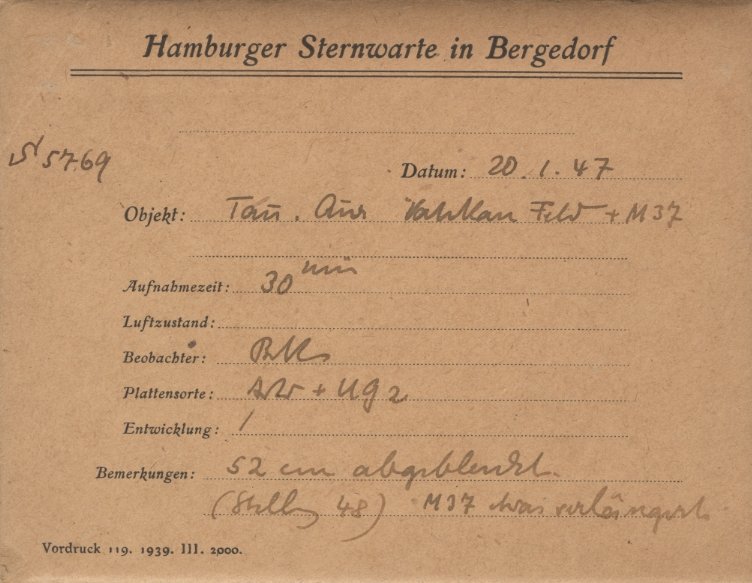 Hamburger Sternwarte in Bergedorf
S 5769
Datum: 20.1.47
Objekt: Tau. Aur Vatikan Feld + M37
Aufnahmezeit: 30 min
Luftzustand:
Beobachter:
Plattensorte: + UG2
Entwicklung: /
Bemerkungen: 52 cm abgeblendet.
(48) M37 etwas verlängert
Vordruck 119. 1939. III. 2000.